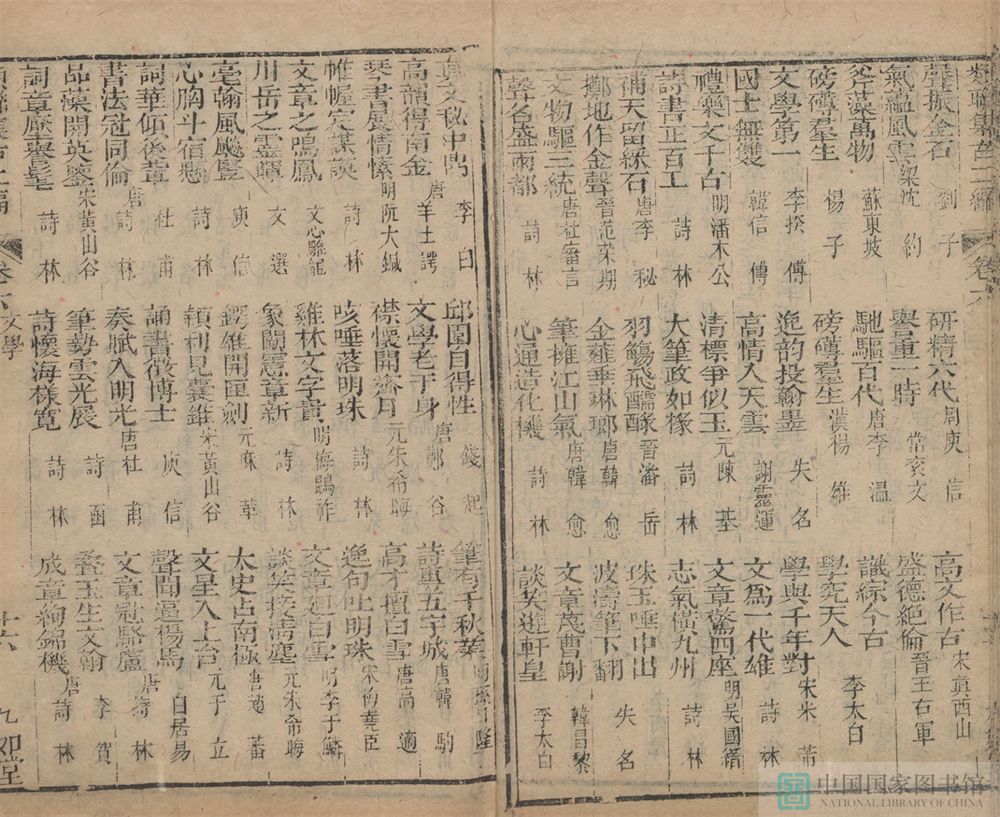 類聯集古二編 卷六
聲振金石 劉子 研精六代 周庾信 高文作古 宋眞西山
氣蘊風雲 梁沈約 譽重一時 常袞文 盛德絕倫 晉王右軍
斧藻萬物 蘇東坡 馳驅百代 唐李溫 識綜今古
磅礴羣生 楊子 磅礴羣生 漢楊雄 學究天人 李太白
文學第一 李揆傳 逸韵投翰墨 失名 學與千年對 宋米芾
國士無雙 韓信傳 高情入天雲 謝靈運 文為一代雄 詩林
禮樂文千古 明潘木公 清標爭似玉 元陳基 文章驚四座 明吳國縉
詩書正百工 詩林 大筆政如椽 詩林 志氣橫九州 詩林
補天留綵石 唐李秘 羽觴飛醽醁 晉潘岳 珠玉唾中出 失名
擲地作金聲 晉范榮期 金薤垂琳瑯 唐韓愈 波濤筆下翻
文物驅三統 唐杜審言 筆摧江山氣 唐韓愈 文章蔑曹謝 韓昌黎
聲名盛兩都 詩林 心通造化機 詩林 談笑遊軒皇 李太白
文秘中 李白 邱園自得性 錢起 筆有千秋業 隆
高韻得南金 唐羊士諤 文學老于身 唐鄭谷 詩專五字城 唐韓駒
琴書展情愫 明阮大鋮 襟懷開霽月 元朱希晦 高才擅白雪 唐高適
帷幄定謀謨 詩林 咳唾落明珠 詩林 逸句吐明珠 宋梅堯臣
文章之鳴鳳 文心雕龍 雞林文字貴 明海鵰祚 文章廻白雪 明李于鱗
川岳之靈暉 文選 象闕憲章新 詩林 談笑接清塵 元朱希晦
毫翰風飚豎 庾信 鍔雄開匣劍 元麻革 太史占南極 唐趙蕃
心胸斗宿懸 詩林 穎利見囊錐 宋黃山谷 文星入上台 元于立
詞華傾後輩 杜甫 誦書徵博士 庾信 聲聞逼楊馬 白居易
書法冠同倫 唐詩林 奏賦入明光 唐杜甫 文章冠駱盧 唐詩林
品藻開英鑒 宋黃山谷 筆勢雲光展 詩函 叠玉生文翰 李賀
詞章壓與髦 詩林 詩懷海樣寬 詩林 成章絢錦機 唐詩林
二編 卷六 文學 十六 九如堂
中国国家图书馆
NATIONAL LIBRARY OF CHINA